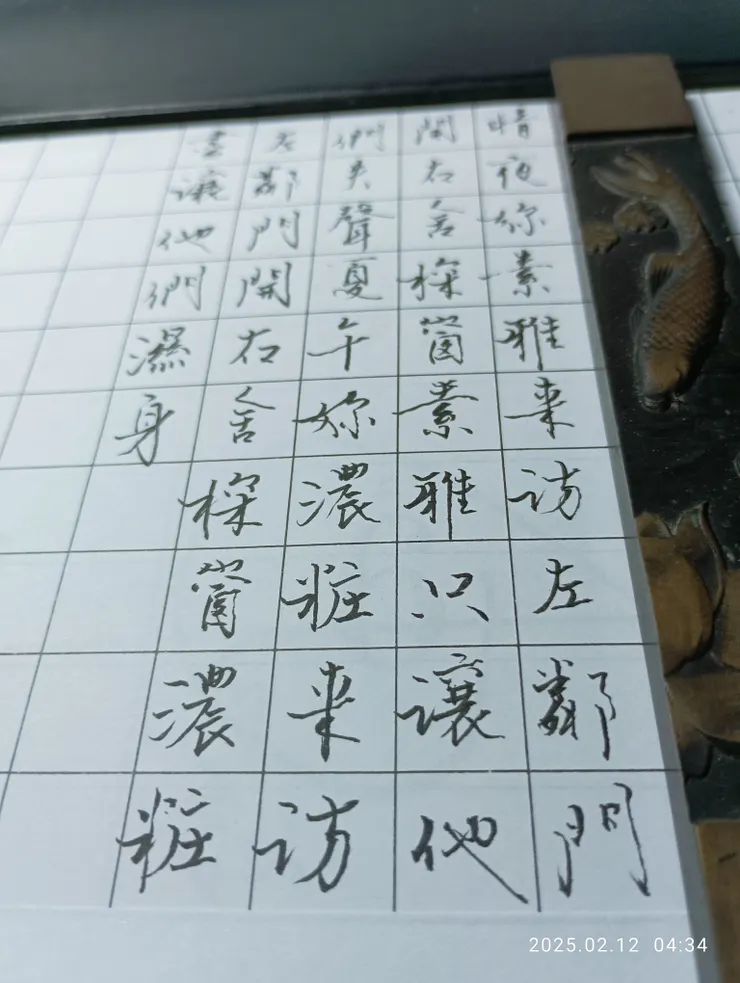 晴夜妳素雅来訪左鄰門
開右舍探窗素雅只讓他
們失聲夏午妳濃粧来訪
左鄰門開右舍探窗濃粧
盡讓他們濕身
2025.02.12 04:34